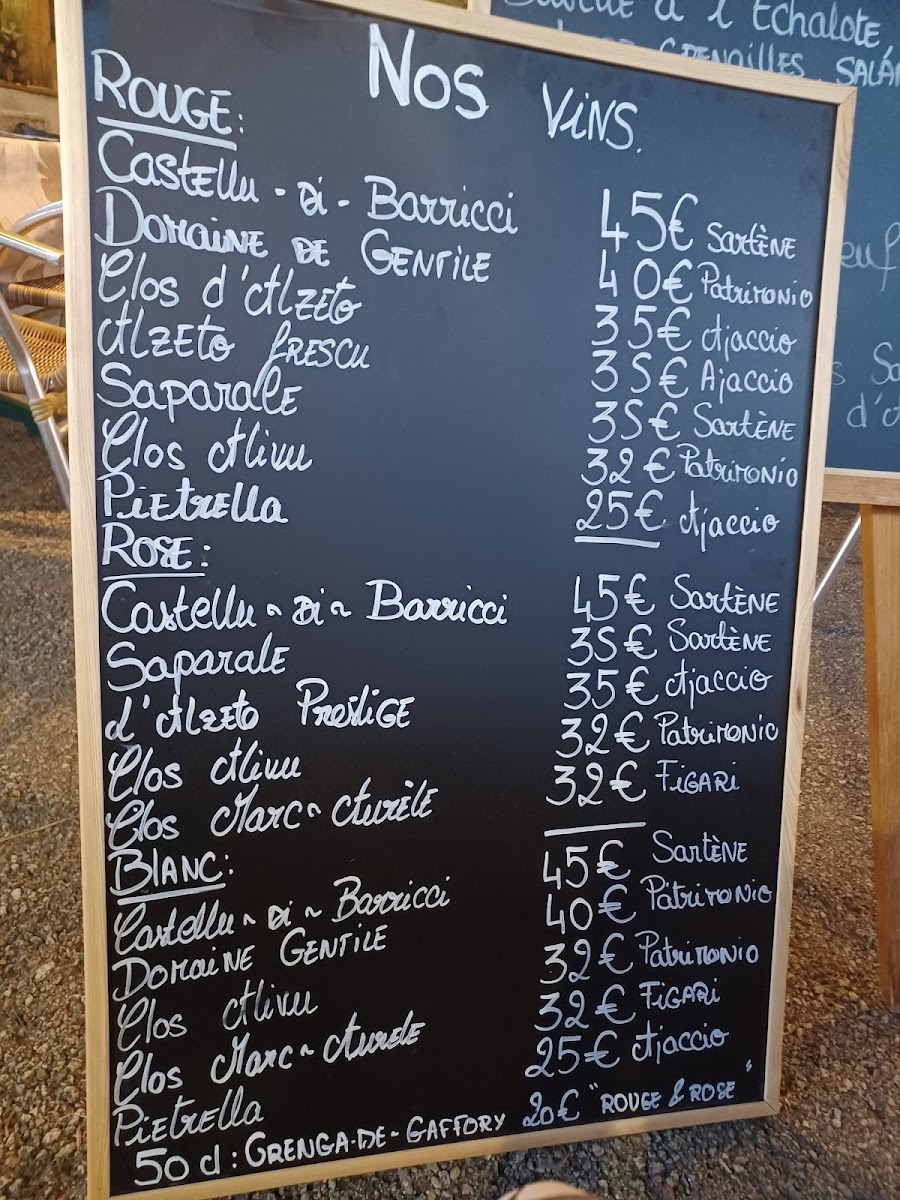 Nos Vins.
Rouge:
Castellu-di-Barricci 45€ Sartène
Domaine de Gentile 40€ Patrimonio
Clos d'Alzeto 35€ Ajaccio
Alzeto frescu 35€ Ajaccio
Saparale 35€ Sartène
Clos Alivu 32€ Patrimonio
Pietrella 25€ Ajaccio
Rose:
Castellu~di~Barricci 45€ Sartène
Saparale 35€ Sartène
d'Alzeto Prestige 35€ Ajaccio
Clos Alivu 32€ Patrimonio
Clos Marc~Aurèle 32€ Figari
Blanc:
Castellu~di~Barricci 45€ Sartène
Domaine Gentile 40€ Patrimonio
Clos Alivu 32€ Patrimonio
Clos Marc~Aurele 32€ Figari
Pietrella 25€ Ajaccio
50 cl: Grenga-de-Gaffory 20€ "Rouge & Rose"
à l'Echalote,
Grenailles, Sala